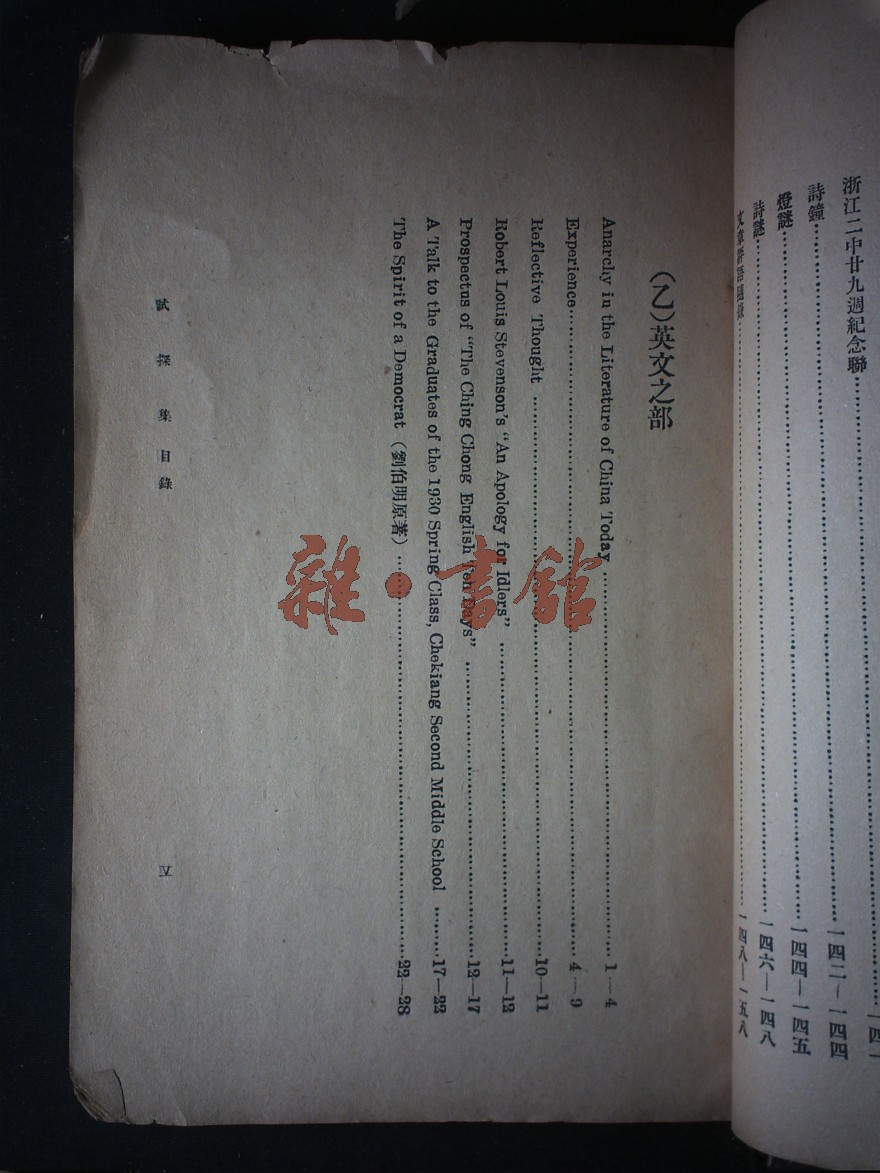 浙江二中廿九週紀念聯……一四一
詩鐘……一四二—一四四
燈謎……一四四—一四五
詩謎……一四六—一四八
文章評語隨錄……一四八—一五八
(乙)英文之部
Anarchy in the Literature of China Today……1—4
Experience……4—9
Reflective Thought……10—11
Robert Louis Stevenson's "An Apology for Idlers"……11—12
Prospectus of "The Ching Chong English Ten Days"……12—17
A Talk to the Graduates of the 1930 Spring Class, Chekiang Second Middle School……17—22
The Spirit of a Democrat (劉伯明原著)……22—28
試探集目錄
IV
雜·書館